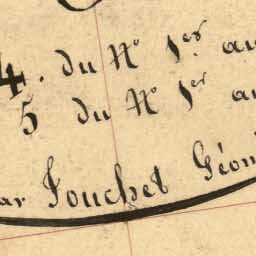 4. du N° 1er au
5 du N° 1er au
par Fouchet Géom